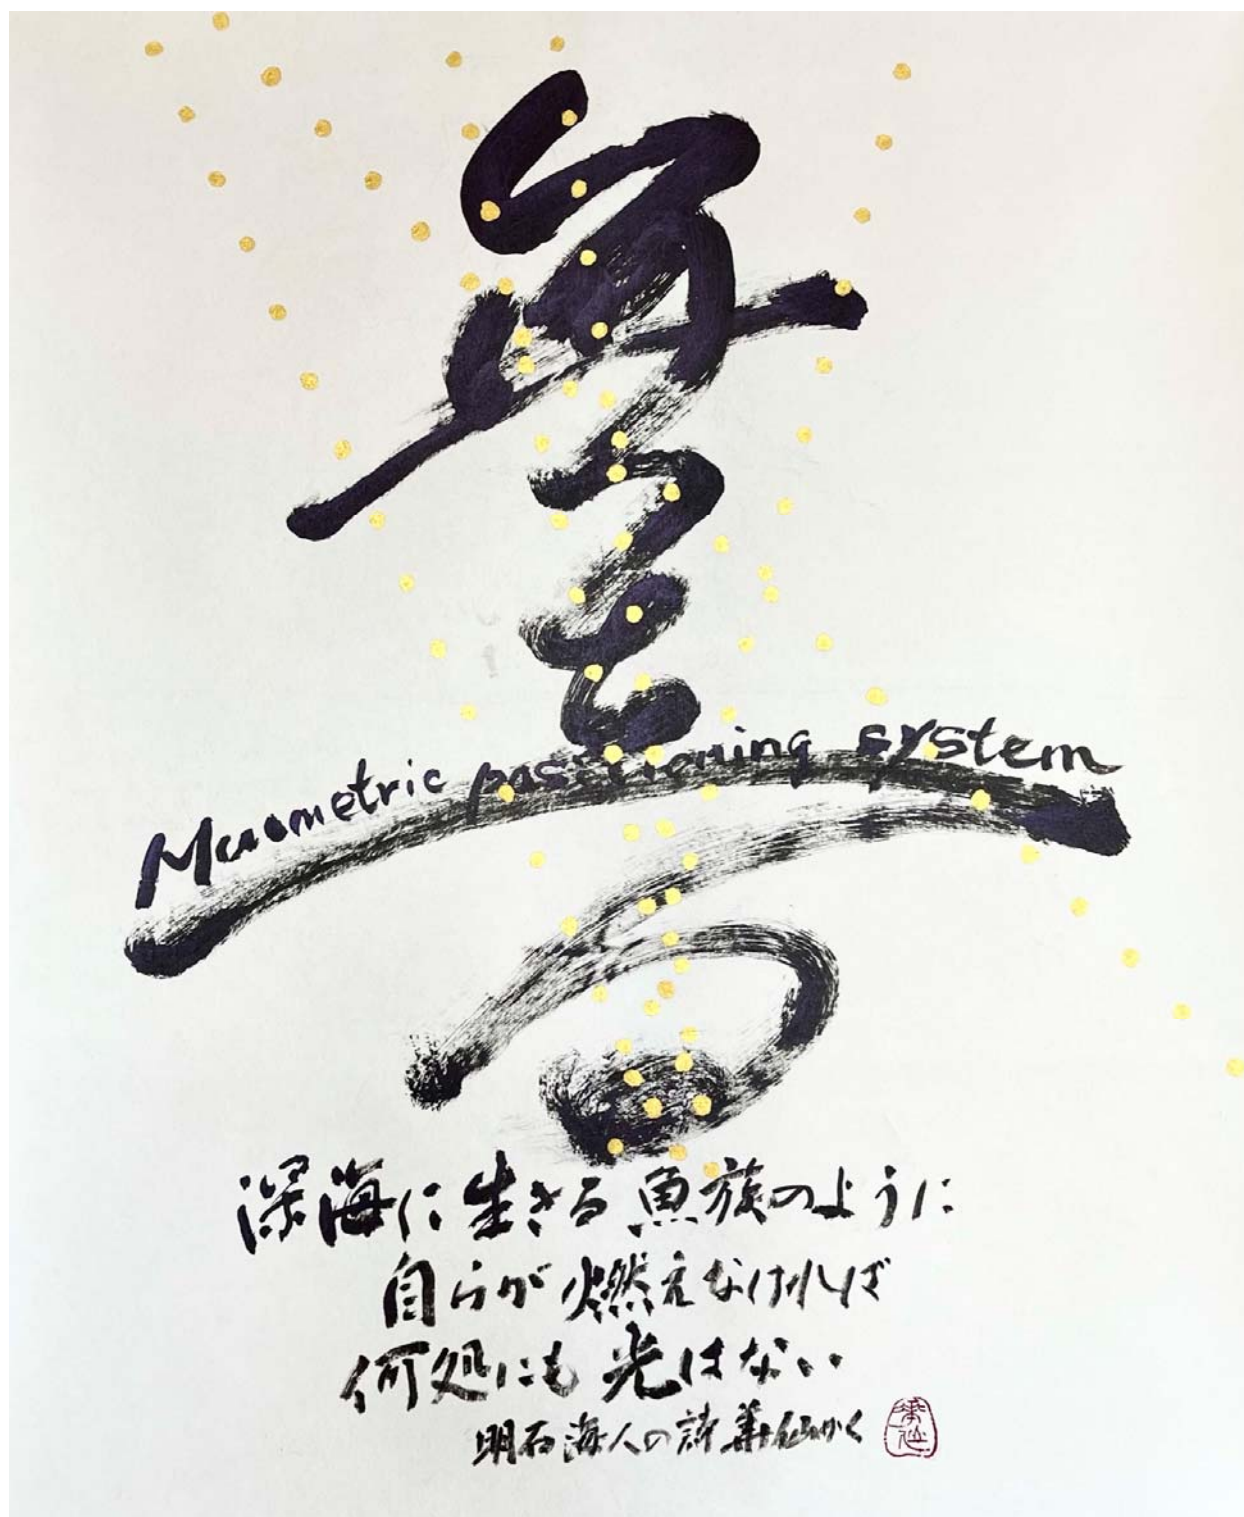 Muometric positioning system
深海に生きる魚族のように
自らが燃えなければ
何処にも光はない
明石海人の詩 華仙かく